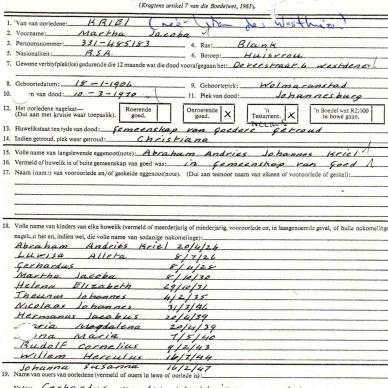 (Kragtens artikel 7 van die Boedelwet, 1965).
1. Van van oorledene: KRIEL (née van der Westhuizen)
2. Voorname: Martha Jacoba
3. Persoonsnommer: 331-485183 4. Ras: Blank
5. Nasionaliteit: R.S.A. 6. Beroep: Huisvrou
7. Gewone verblyfplek(ke) gedurende die 12 maande wat die dood voorafgegaan het: Deverstraat 6 Westdene
8. Geboortedatum: 18-1-1906 9. Geboorteplek: Wolmaranstad
10. Datum van dood: 10-3-1970 11. Plek van dood: Johannesburg
12. Het oorledene nagelaat— (Dui aan met kruise waar toepaslik). Roerende goed. Onroerende goed. X 'n Testament. X 'n Boedel wat R2.500 te bowe gaan.
13. Huwelikstaat ten tyde van dood: Gemeenskap van goedere getroud
14. Indien getroud, plek waar getroud: Christiana
15. Volle name van langslewende eggenoot(note): Abraham Andries Johannes Kriel
16. Vermeld of huwelik in of buite gemeenskap van goed was: in gemeenskap van goed
17. Naam (name) van vooroorlede en/of geskeide eggenoot(note). (Dui aan teenoor naam van elkeen of vooroorlede of geskei):
18. Volle name van kinders van elke huwelik (vermeld of meerderjarig of minderjarig, vooroorlede en, in laasgenoemde geval, of hulle nakomelinge nagelaat het en, indien wel, die volle name van sodanige nakomelinge):
Abraham Andries Kriel 20/4/24
Lurisa Alleta 8/7/26
Gerhardus 8/4/28
Martha Jacoba 8/10/30
Helena Elizabeth 29/10/31
Theunis Johannes 4/2/35
Nicolaas Johannes
Hermanus Jacobus 20/4/39
Magdalena 20/4/39
Maria 7/5/40
Rudolf Cornelius 9/2/43
Willem Herculus 16/7/44
Johanna Susanna 16/2/47
19. Name van ouers van oorledene (vermeld of ouers in lewe of oorlede is):
Gerhardus